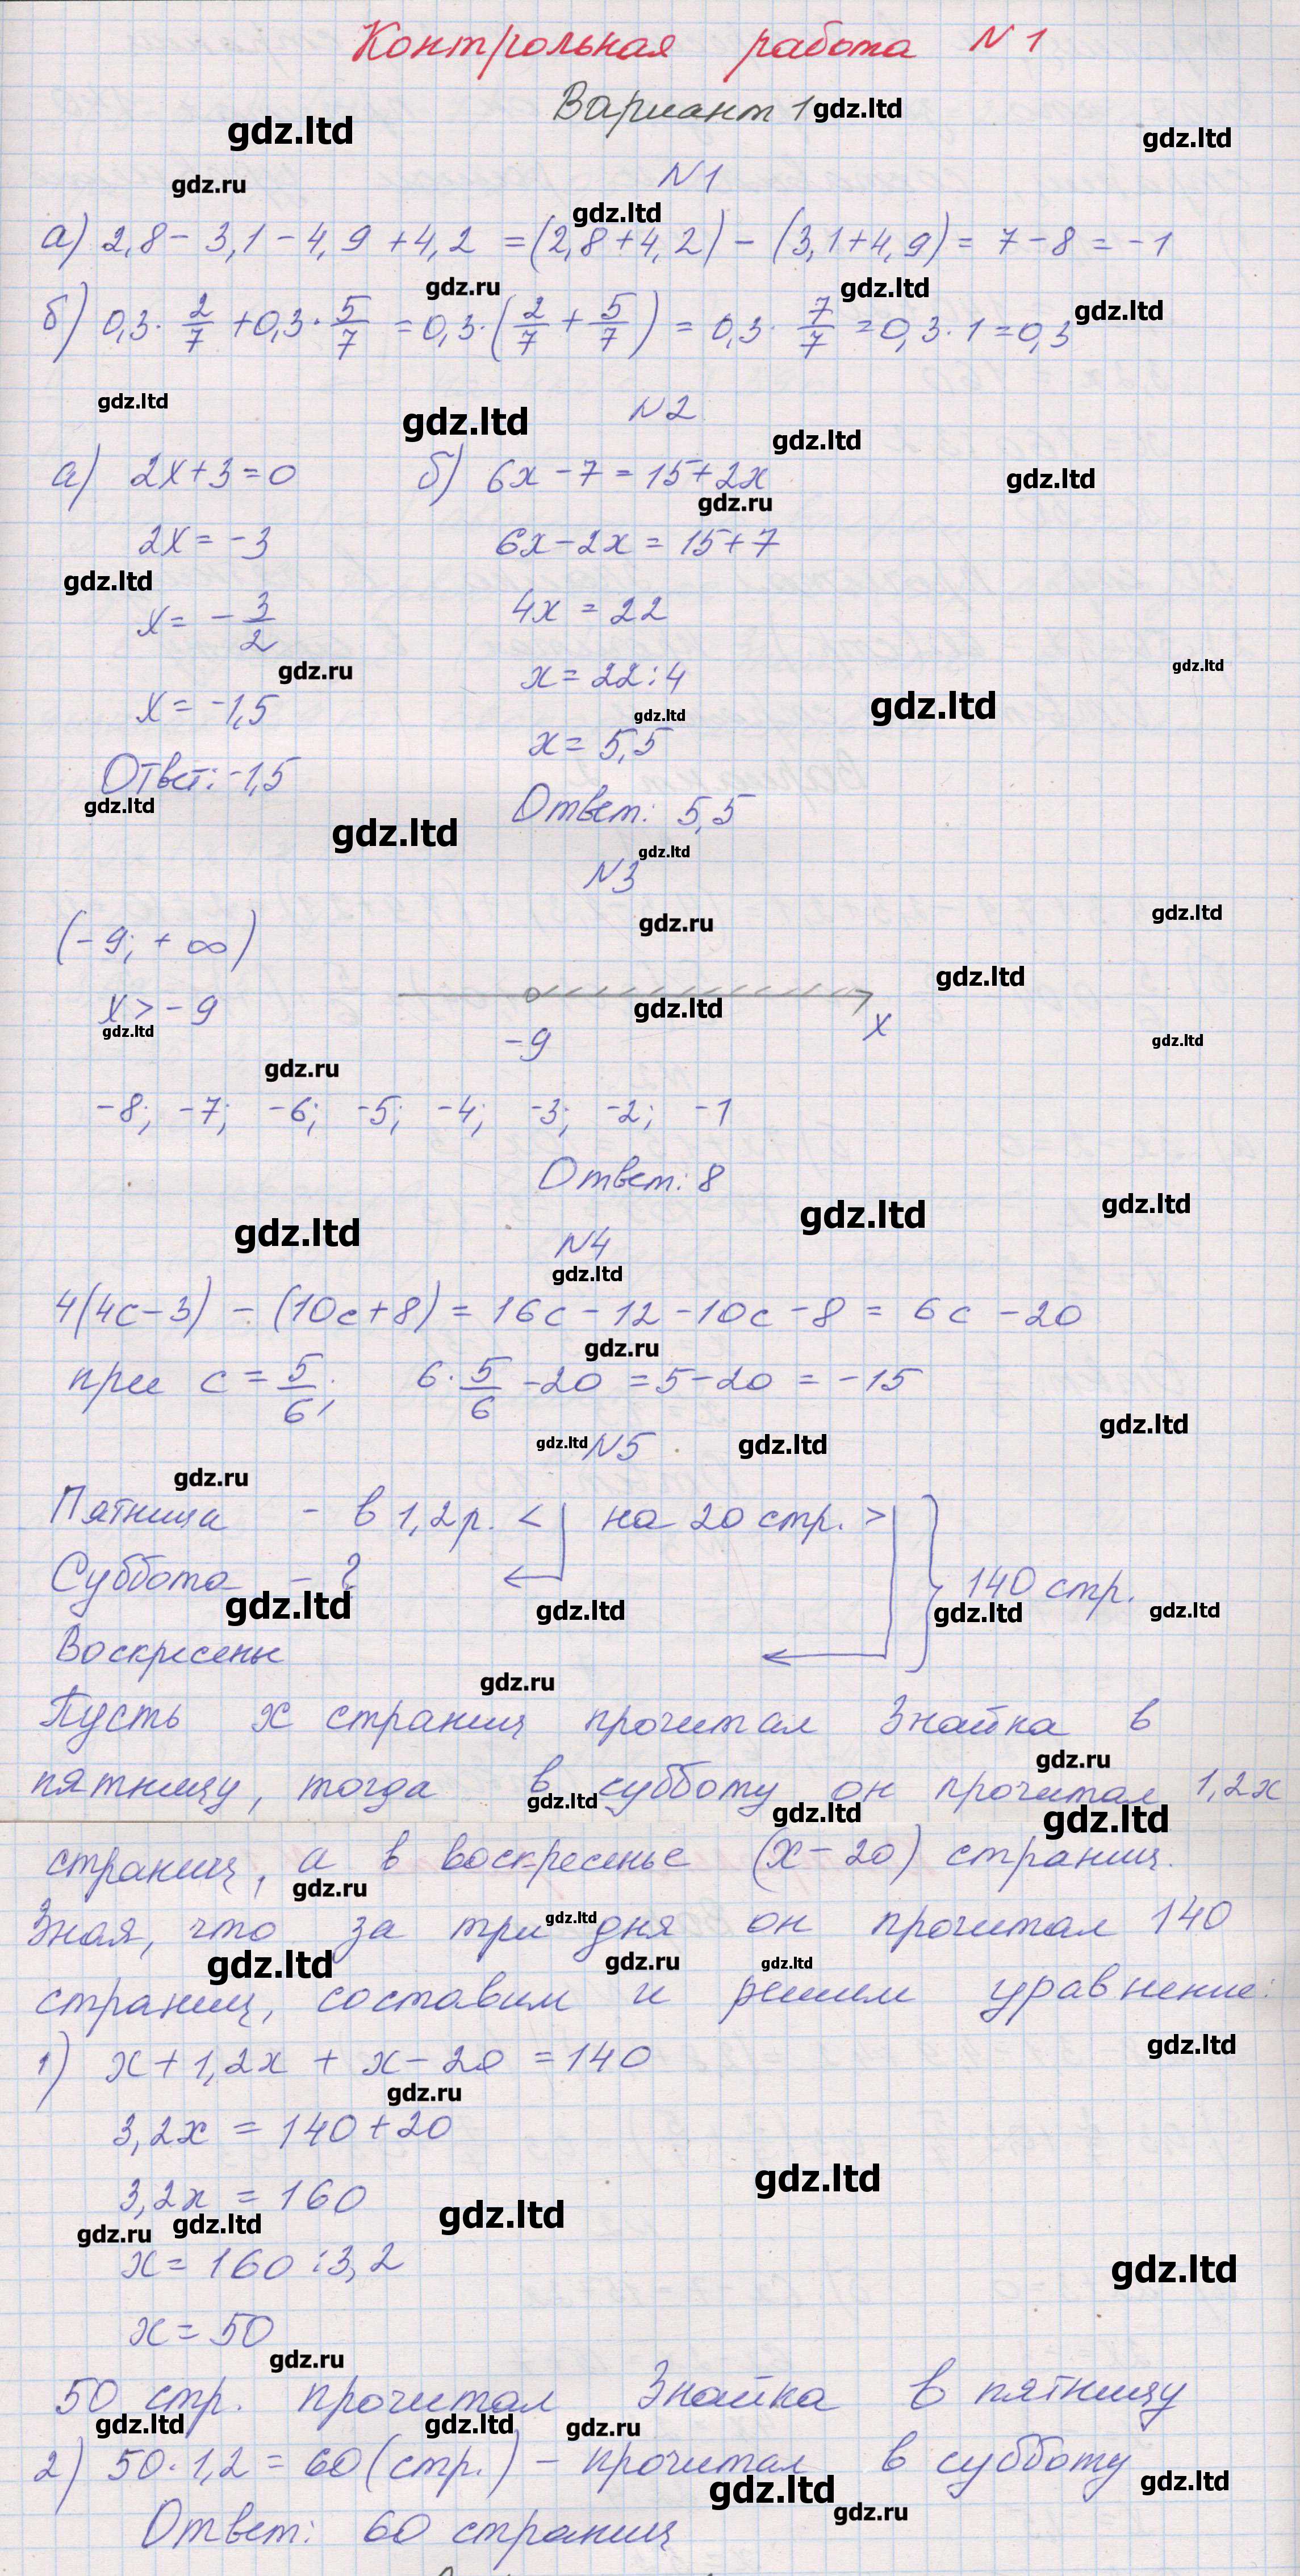 Контрольная работа N 1
Вариант 1 gdz.ltd
gdz.ltd gdz.ltd
gdz.ru N1
gdz.ltd
а) 2,8 - 3,1 - 4,9 + 4,2 = (2,8 + 4,2) - (3,1 + 4,9) = 7 - 8 = -1
gdz.ru gdz.ltd gdz.ltd
б) 0,3 · 2/7 + 0,3 · 5/7 = 0,3 · (2/7 + 5/7) = 0,3 · 7/7 = 0,3 · 1 = 0,3
gdz.ltd gdz.ltd N2
gdz.ltd
а) 2x + 3 = 0 б) 6x - 7 = 15 + 2x gdz.ltd
gdz.ru
2x = -3 6x - 2x = 15 + 7
gdz.ltd
x = -3/2 4x = 22
gdz.ru x = 22 : 4 gdz.ltd
x = -1,5 gdz.ltd gdz.ltd
x = 5,5
Ответ: -1,5
gdz.ltd Ответ: 5,5
gdz.ltd gdz.ltd
N3
gdz.ru gdz.ltd
(-9; +∞)
gdz.ltd
x > -9 gdz.ltd
gdz.ltd -9 x gdz.ltd
gdz.ru
-8; -7; -6; -5; -4; -3; -2; -1
Ответ: 8
gdz.ltd gdz.ltd gdz.ltd
N4
gdz.ltd
4(4c - 3) - (10c + 8) = 16c - 12 - 10c - 8 = 6c - 20
gdz.ru
при c = 5/6; 6 · 5/6 - 20 = 5 - 20 = -15
gdz.ltd
gdz.ltd N5 gdz.ltd
gdz.ru
Пятница - в 1,2 р. < на 20 стр. >
Суббота - ? 140 стр.
gdz.ltd gdz.ltd gdz.ltd gdz.ltd
Воскресенье
gdz.ru
Пусть x страниц прочитал Знайка в
gdz.ru
пятницу, тогда в субботу он прочитал 1,2x
gdz.ltd gdz.ltd gdz.ltd
страниц, а в воскресенье (x - 20) страниц.
gdz.ru
Зная, что за три дня он прочитал 140
gdz.ltd
gdz.ltd gdz.ru gdz.ltd
страниц, составим и решим уравнение:
gdz.ltd
1) x + 1,2x + x - 20 = 140
gdz.ru
3,2x = 140 + 20
gdz.ltd
3,2x = 160
gdz.ru gdz.ltd gdz.ltd
x = 160 : 3,2
gdz.ltd
x = 50
gdz.ru
50 стр. прочитал Знайка в пятницу
gdz.ltd gdz.ltd gdz.ru
2) 50 · 1,2 = 60 (стр.) - прочитал в субботу
gdz.ltd gdz.ltd
gdz.ru
Ответ: 60 страниц